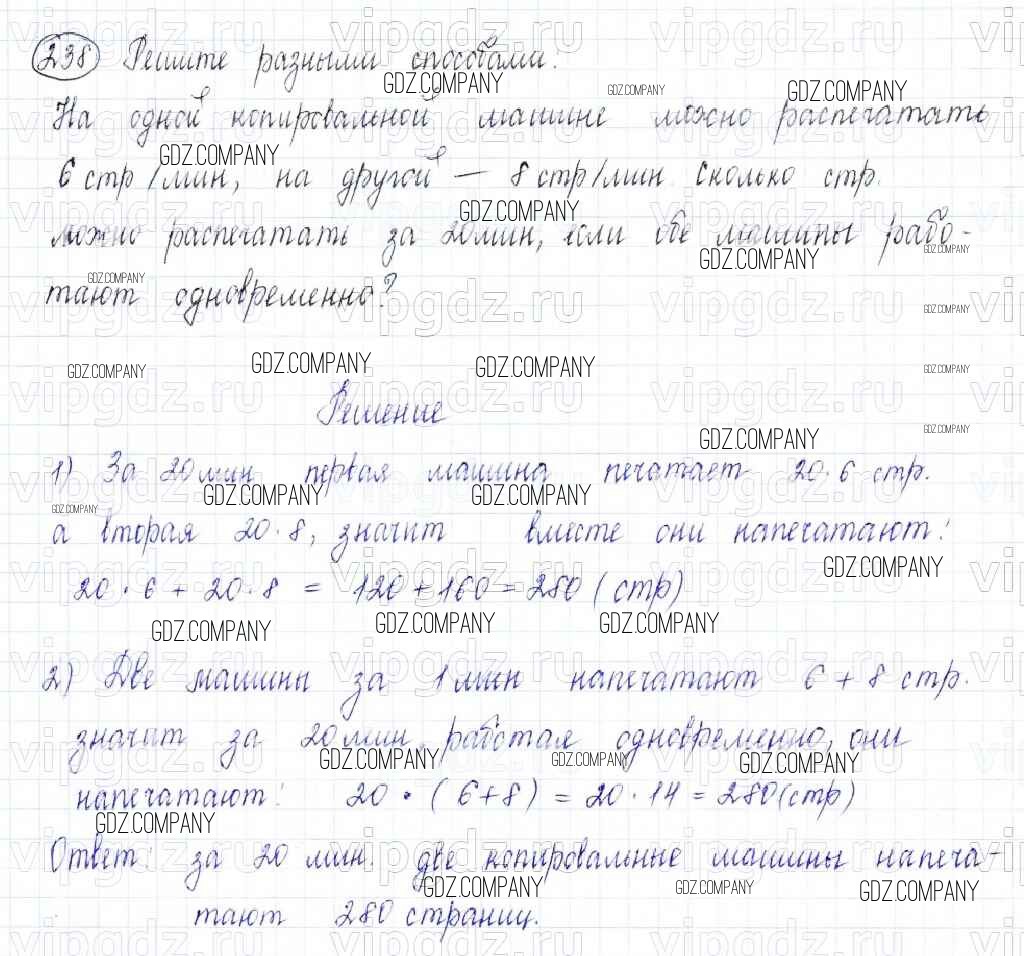 238 Решите разными способами:
На одной копировальной машине можно распечатать
6 стр/мин, на другой — 8 стр/мин. Сколько стр.
можно распечатать за 20 мин, если обе машины рабо-
тают одновременно?
Решение
1) За 20 мин первая машина печатает 20·6 стр.
а вторая 20·8, значит вместе они напечатают:
20·6 + 20·8 = 120 + 160 = 280 (стр)
2) Две машины за 1 мин напечатают 6 + 8 стр.
значит за 20 мин, работая одновременно, они
напечатают: 20 · (6+8) = 20·14 = 280 (стр)
Ответ: за 20 мин. две копировальные машины напеча-
тают 280 страниц.
GDZ.COMPANY
vipgdz.ru